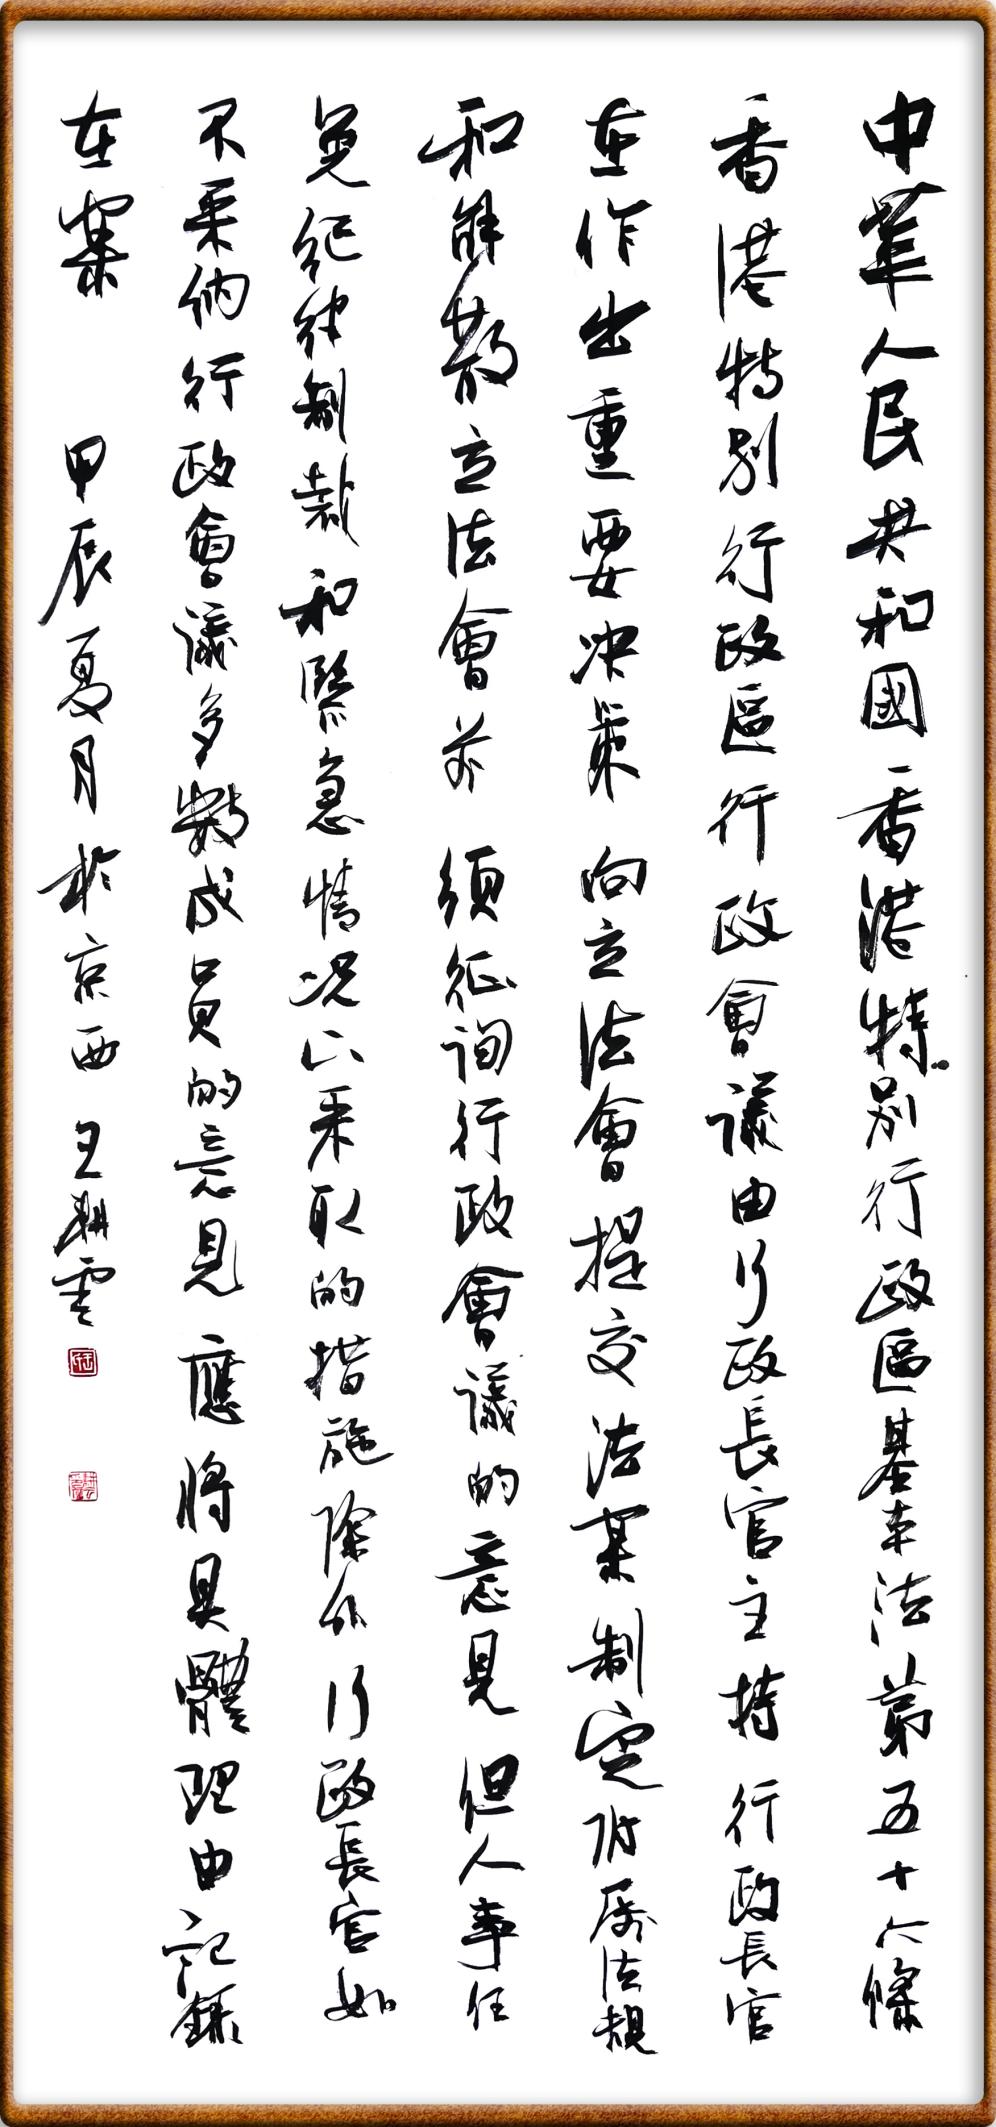 中華人民共和國香港特別行政區基本法第五十六條
香港特別行政區行政會議由行政長官主持行政長官
在作出重要决策向立法會提交法案制定附属法規
和解散立法會前須征詢行政會議的意見但人事任
免紀律制裁和緊急情况下采取的措施除外行政長官如
不采納行政會議多數成員的意見應將具體理由記錄
在案 甲辰夏月於京西王耕雲